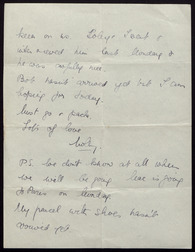 been on to Tolley's I want &
interviewed him last Monday &
he was awfully nice.
Bob hasn't arrived yet but I am
hoping for Friday.
Must go & pack.
Lots of love
Molly
PS. We don't know at all when
we will be going. Lear is going
to Paris on Monday.
My parcel with shoes hasn't
arrived yet.